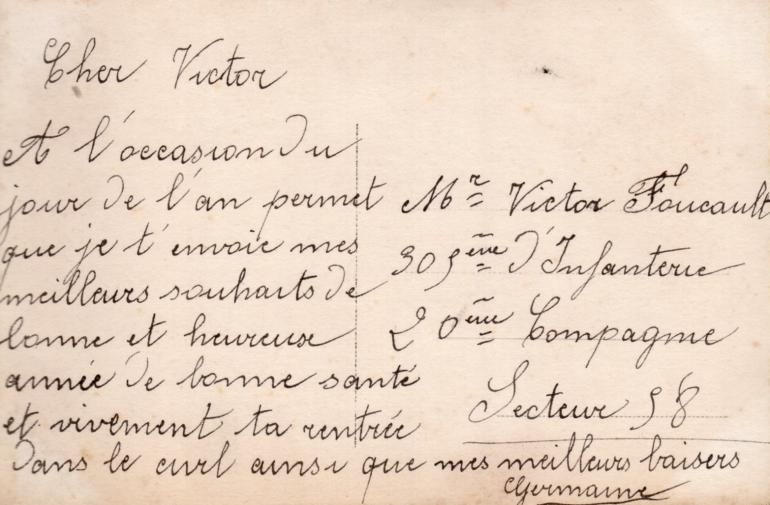 Cher Victor
A l'occasion du
jour de l'an permet
que je t'envoie mes
meilleurs souhaits de
bonne et heureuse
année de bonne santé
et vivement ta rentrée
dans le civil ainsi que mes meilleurs baisers
Germaine
Mr Victor Foucault
305ème d'Infanterie
20ème Compagnie
Secteur 58